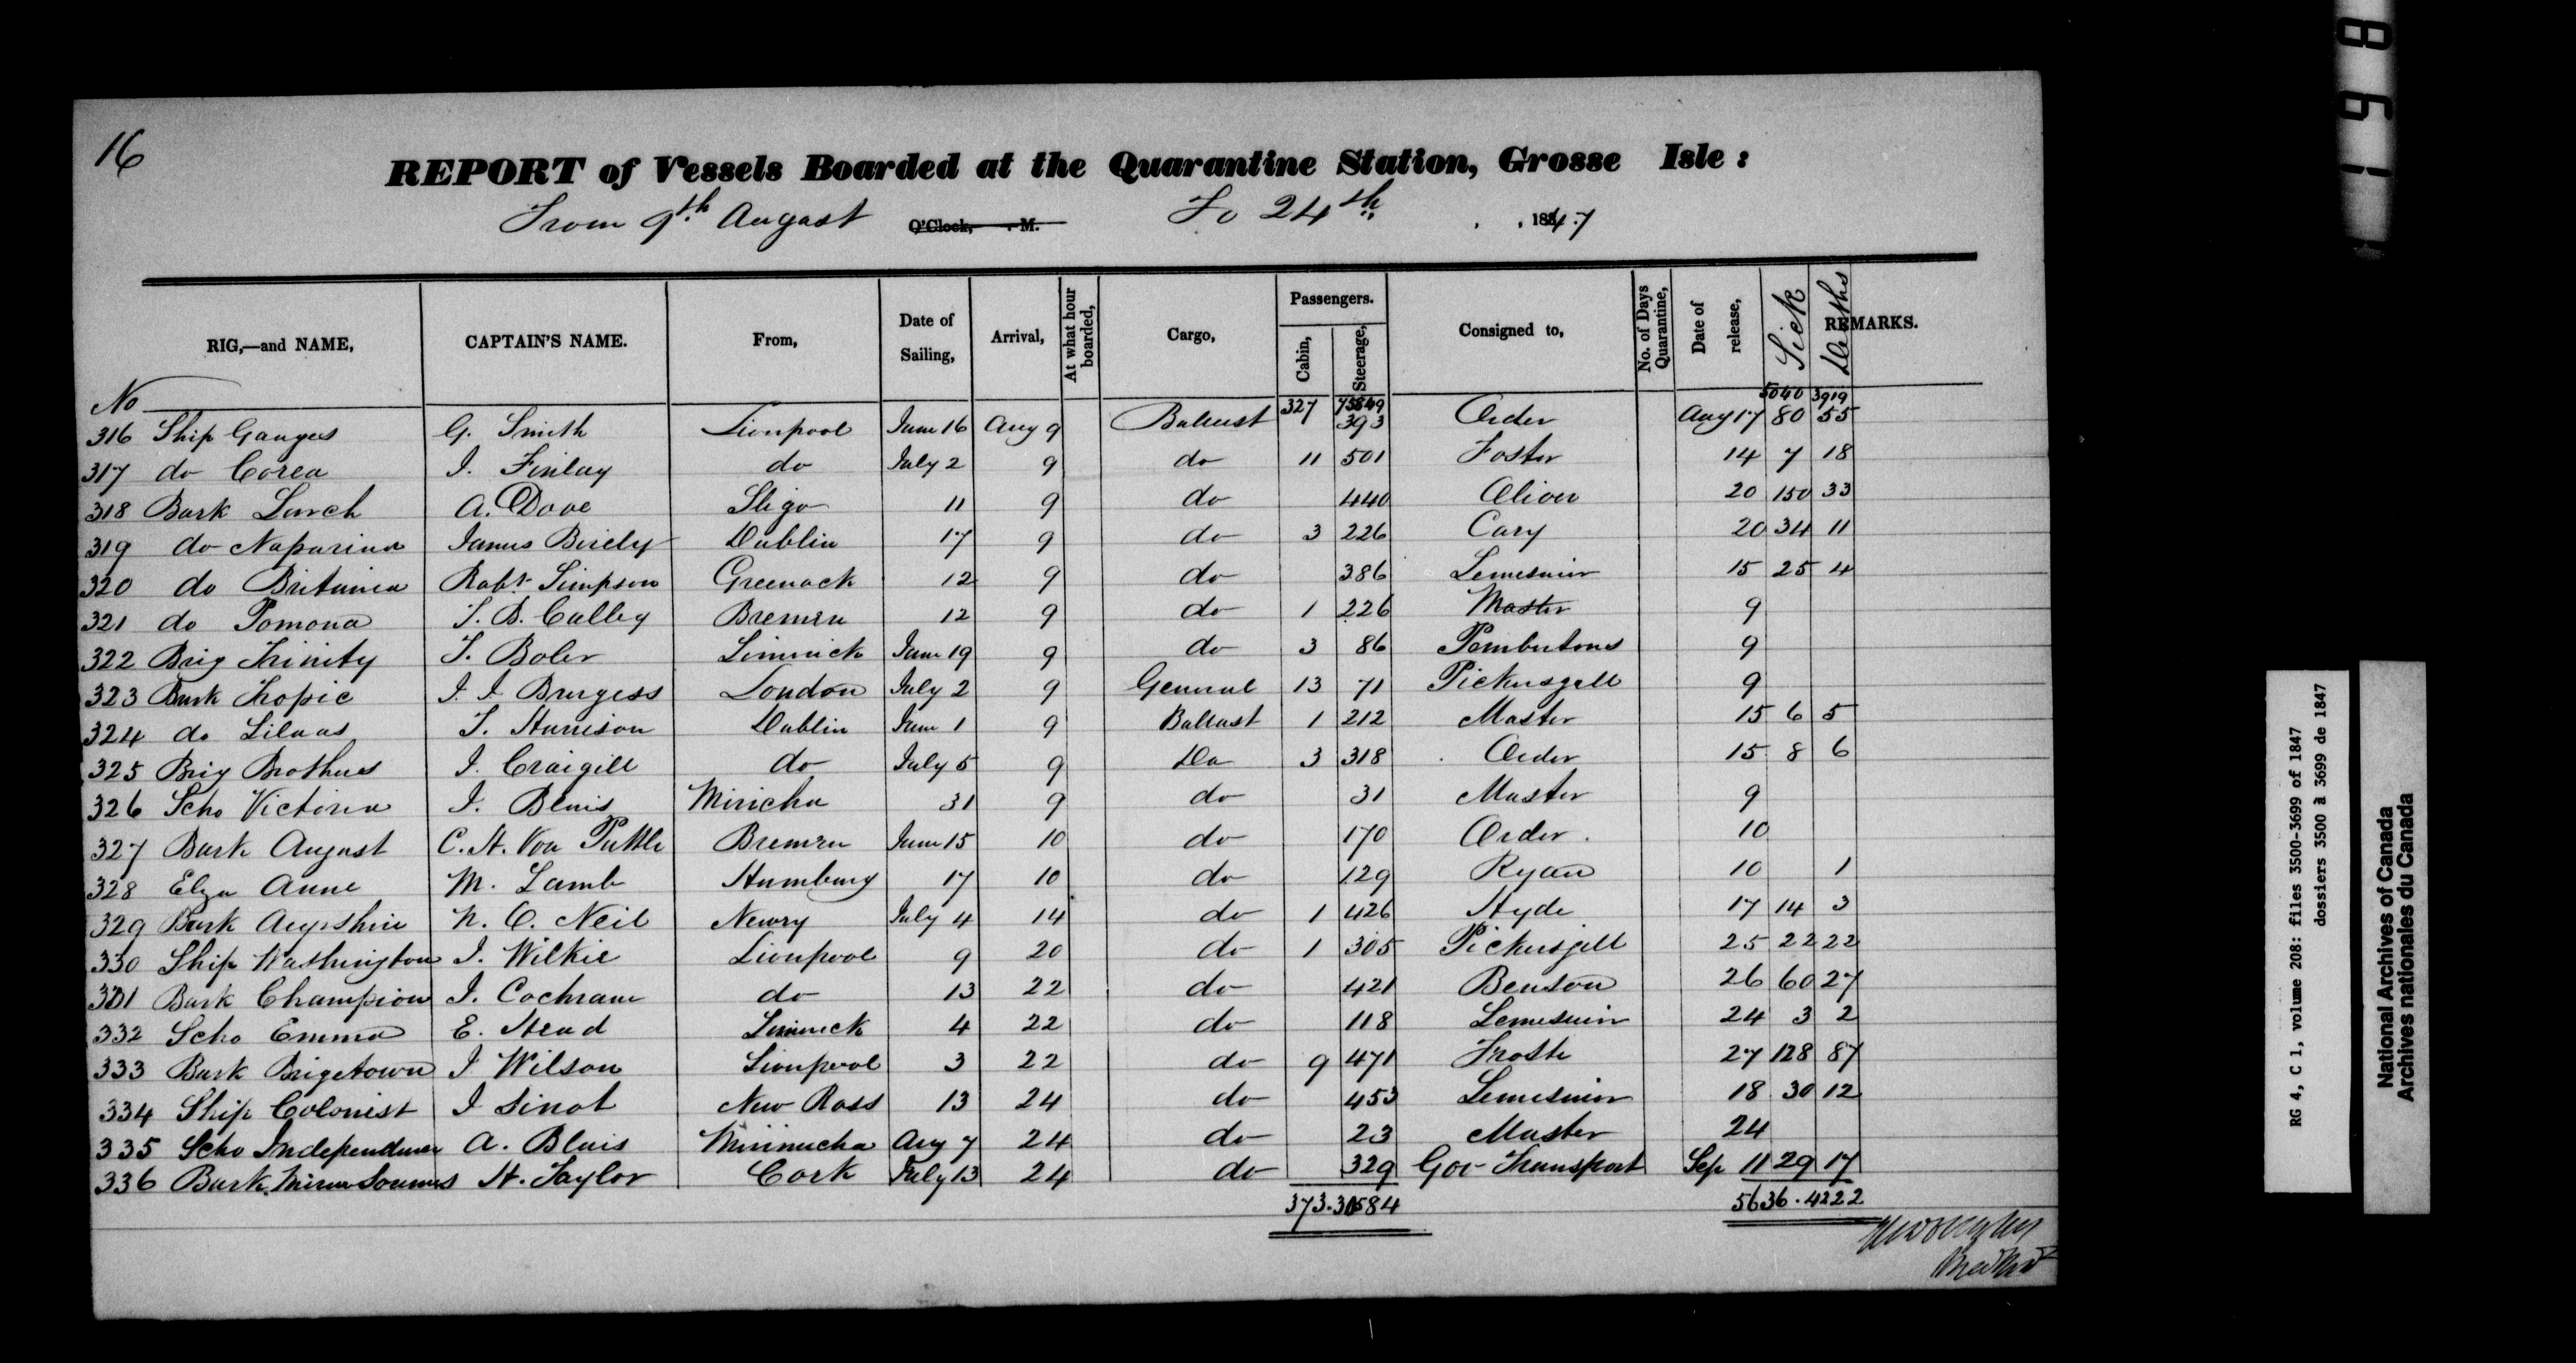 16
REPORT of Vessels Boarded at the Quarantine Station, Grosse Isle :
From 9th August O'Clock, .M. To 24th , 1847
RIG,—and NAME, CAPTAIN'S NAME. From, Date of Sailing, Arrival, At what hour boarded, Cargo, Passengers. Cabin, Steerage, Consigned to, No. of Days Quarantine, Date of release, Sick Deaths REMARKS.
No 327 5040 3919
316 Ship Ganges G. Smith Liverpool June 16 Aug 9 Ballast 393 Order Aug 17 80 55
317 do Corea J. Finlay do July 2 9 do 11 501 Foster 14 7 18
318 Bark Larch A. Dove Sligo 11 9 do 440 Oliver 20 150 33
319 do Naparina James Birely Dublin 17 9 do 3 226 Cary 20 34 11
320 do Britania Robt Simpson Greenock 12 9 do 386 Lemesuier 15 25 4
321 do Pomona T. B. Culley Bremen 12 9 do 1 226 Master 9
322 Brig Trinity T. Boler Limrick June 19 9 do 3 86 Pembertons 9
323 Bark Tropic J. J. Burgess London July 2 9 General 13 71 Pickersgill 9
324 do Lilias T. Harrison Dublin June 1 9 Ballast 1 212 Master 15 6 5
325 Brig Brothers J. Craigill do July 5 9 Do 3 318 Order 15 8 6
326 Scho Victoria J. Blais Miricha 31 9 do 31 Master 9
327 Bark August C. H. Von Bremen June 15 10 do 170 Order. 10
328 Elza Anne M. Lamb Hamburg 17 10 do 129 Ryan 10 1
329 Bark Ayrshire N. O. Neil Newry July 4 14 do 1 426 Hyde 17 14 3
330 Ship Washington J. Wilkie Liverpool 9 20 do 1 305 Pickersgill 25 22 22
331 Bark Champion J. Cochrane do 13 22 do 421 Benson 26 60 27
332 Scho Emma E. Head Limrick 4 22 do 118 Lemesuier 24 3 2
333 Bark Brigetown J Wilson Liverpool 3 22 do 9 471 Froste 27 128 87
334 Ship Colonist J Sinot New Ross 13 24 do 453 Lemesuier 18 30 12
335 Scho Independence A. Blais Mirimucha Aug 7 24 do 23 Master 24
336 Bark H. Taylor Cork July 13 24 do 329 Gov Transport Sep 11 29 17
373. 5636.4222
RG 4, C 1, volume 208: files 3500-3699 of 1847
dossiers 3500 à 3699 de 1847
National Archives of Canada
Archives nationales du Canada